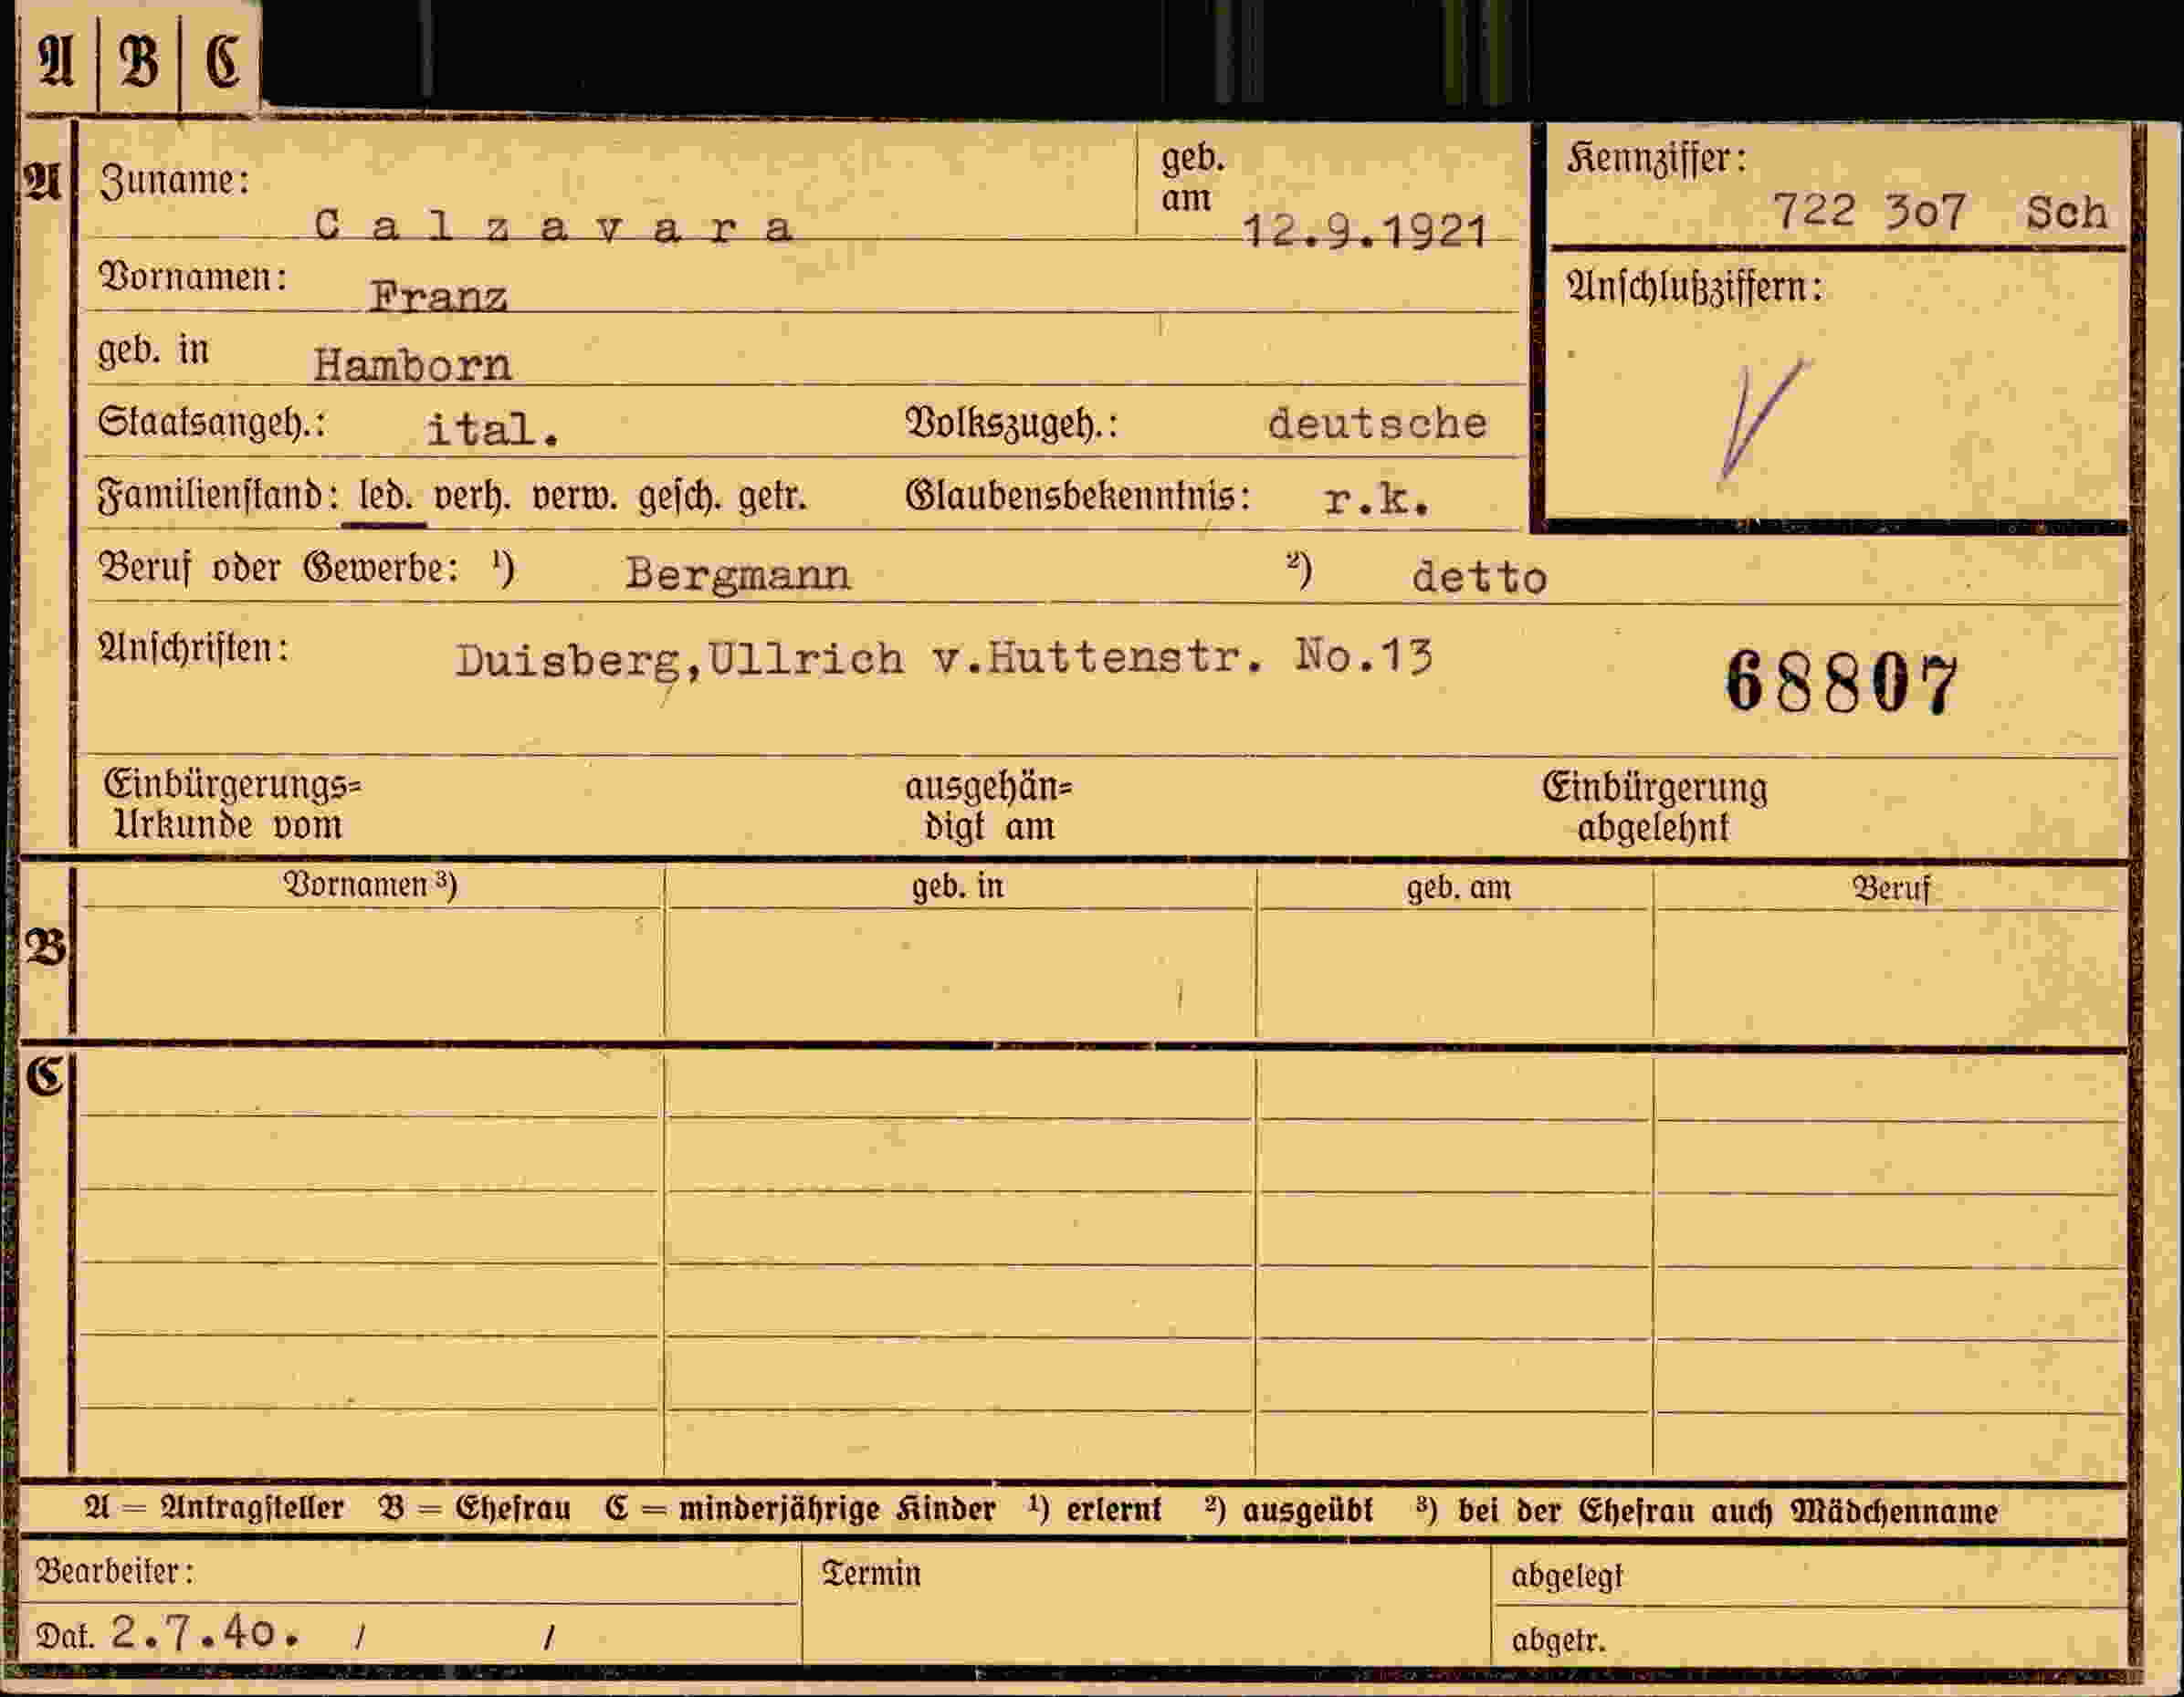 A B C
A
Zuname: Calzavara geb. am 12.9.1921
Kennziffer: 722 307 Sch
Vornamen: Franz
Anschlußziffern:
geb. in Hamborn
Staatsangeh.: ital. Volkszugeh.: deutsche
Familienstand: led. verh. verw. gesch. getr. Glaubensbekenntnis: r.k.
Beruf oder Gewerbe: ¹) Bergmann ²) detto
Anschriften: Duisberg,Ullrich v.Huttenstr. No.13 68807
Einbürgerungs= ausgehän= Einbürgerung
Urkunde vom digt am abgelehnt
Vornamen ³) geb. in geb. am Beruf
B
C
A = Antragsteller B = Ehefrau C = minderjährige Kinder ¹) erlernt ²) ausgeübt ³) bei der Ehefrau auch Mädchenname
Bearbeiter: Termin abgelegt
Dat. 2.7.40. / / abgetr.